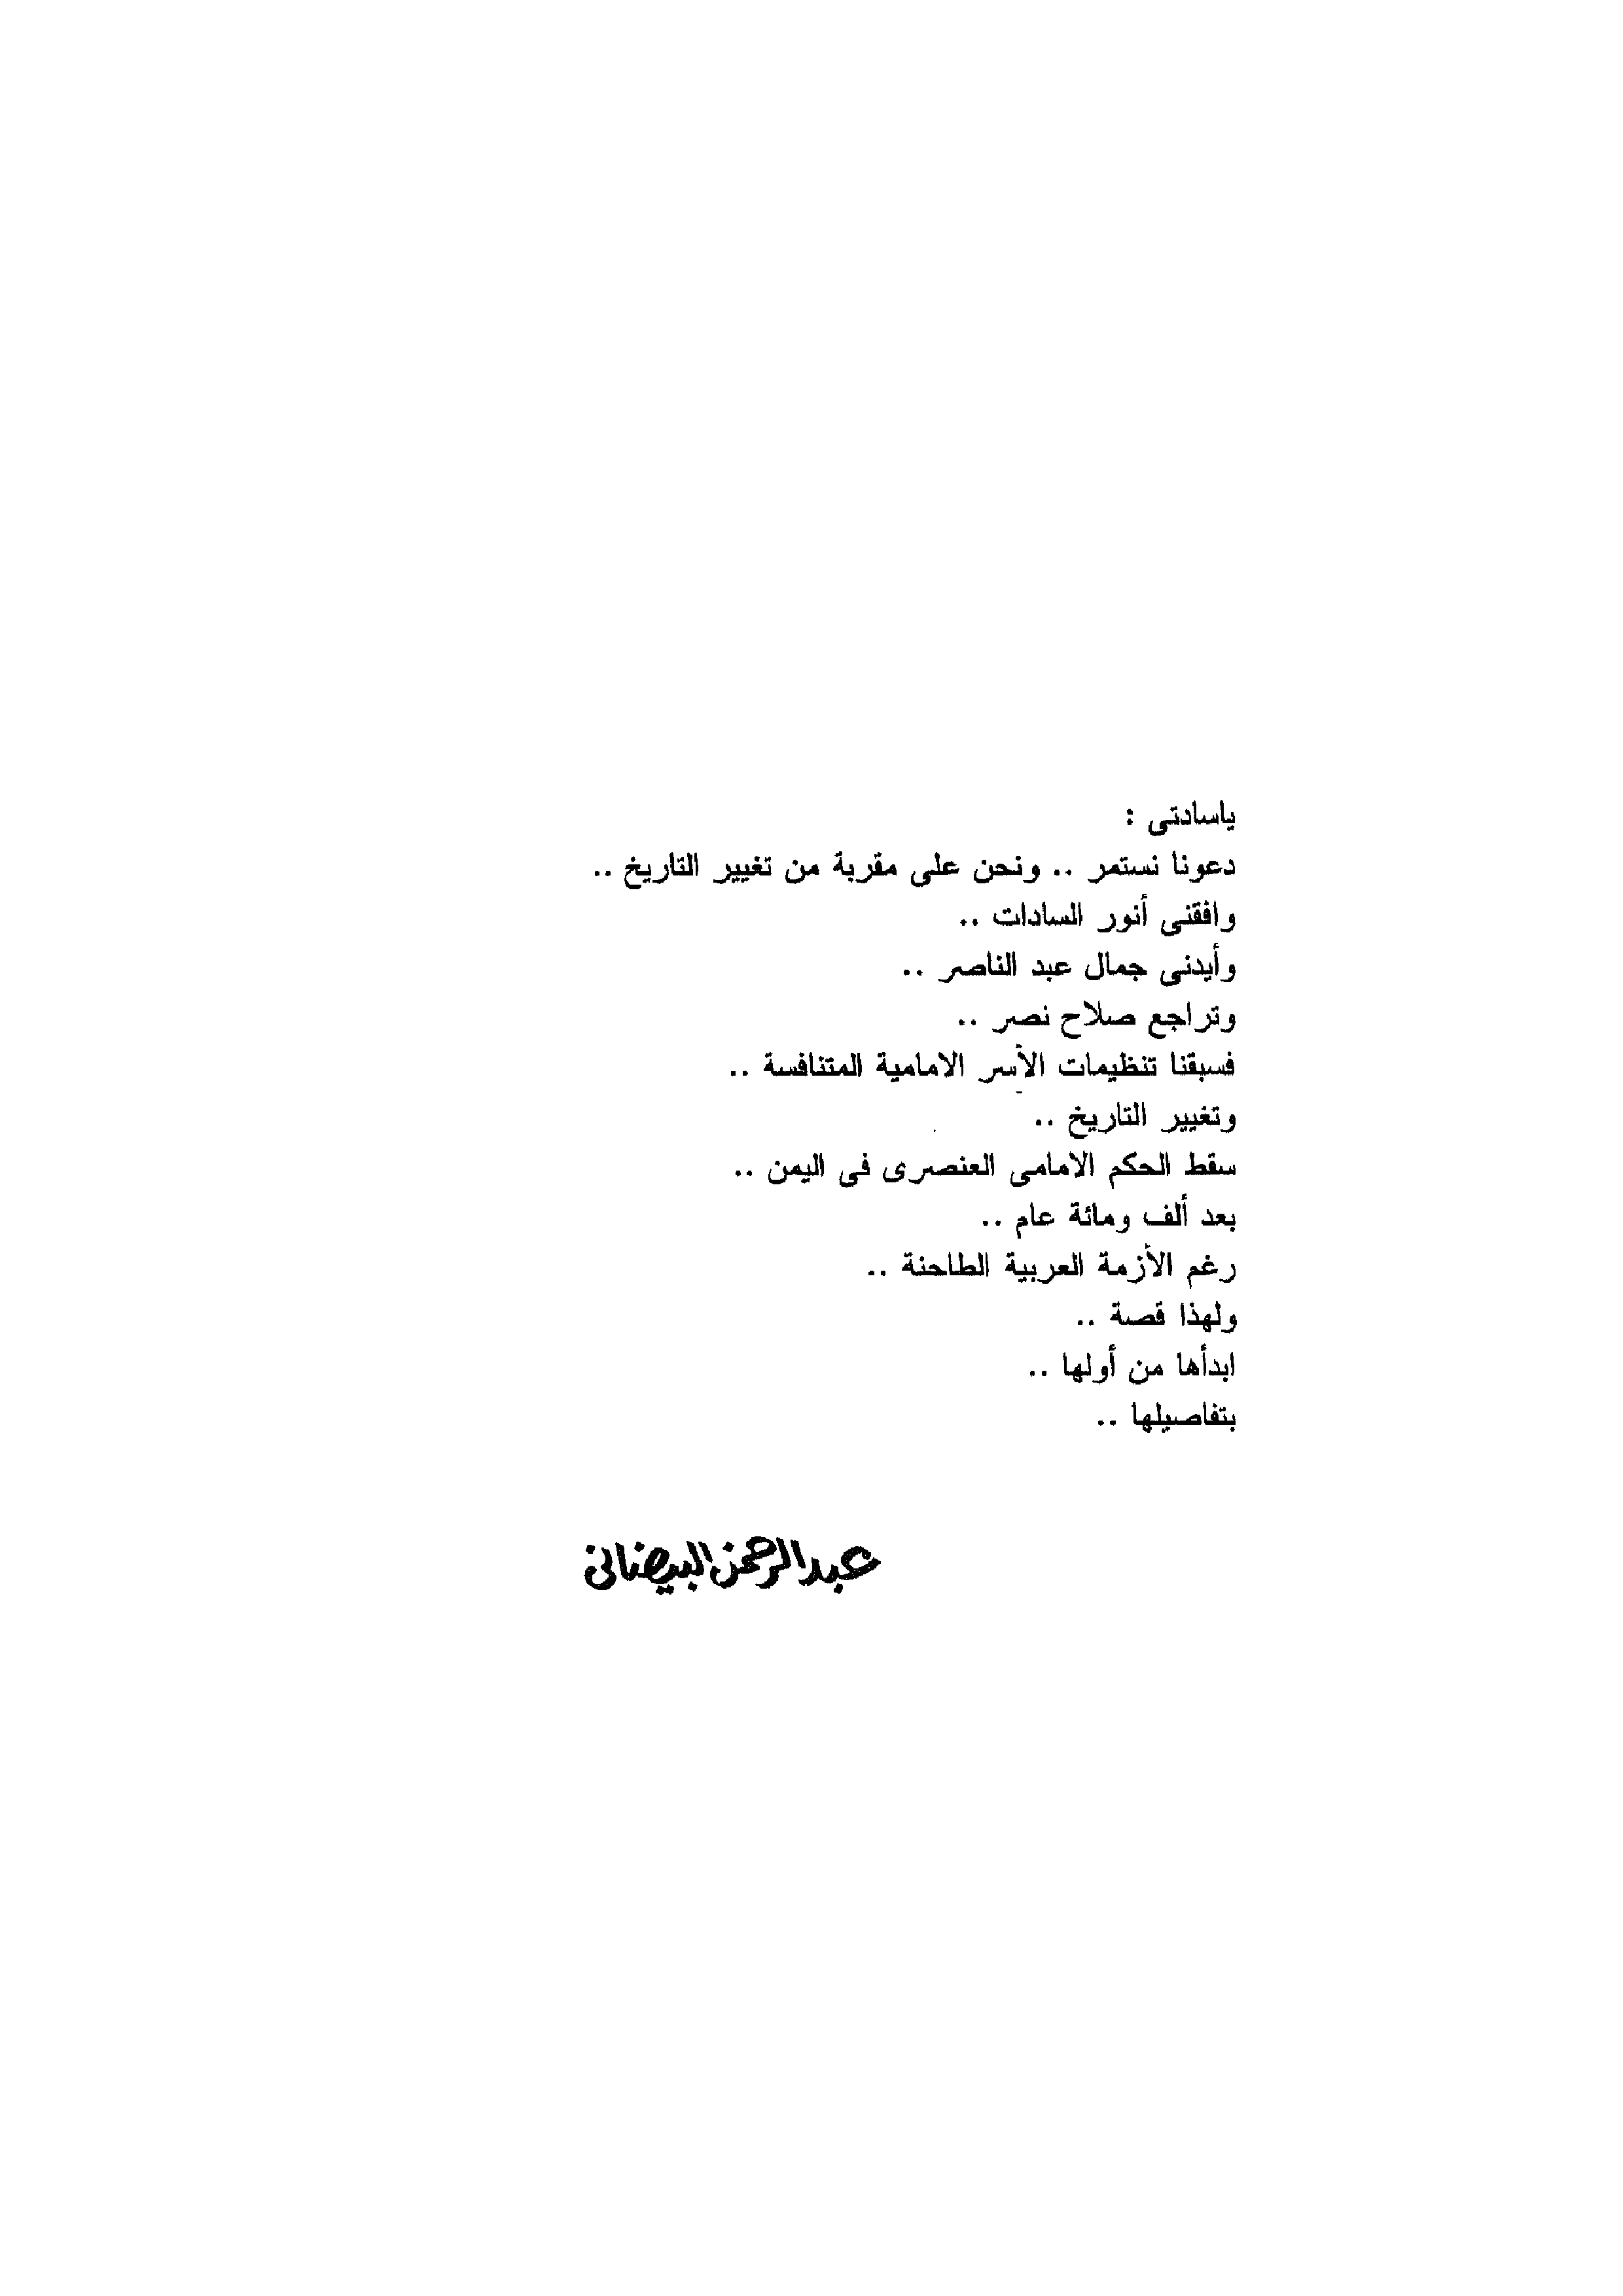 ياسادتى :
دعونا نستمر .. ونحن على مقربة من تغيير التاريخ ..
وافقنى أنور السادات ..
وأيدنى جمال عبد الناصر ..
وتراجع صلاح نصر ..
فسبقنا تنظيمات الأسر الامامية المتنافسة ..
وتغيير التاريخ ..
سقط الحكم الامامى العنصرى فى اليمن ..
بعد ألف ومائة عام ..
رغم الأزمة العربية الطاحنة ..
ولهذا قصة ..
ابدأها من أولها ..
بتفاصيلها ..
عبدالرحمن البيضانى